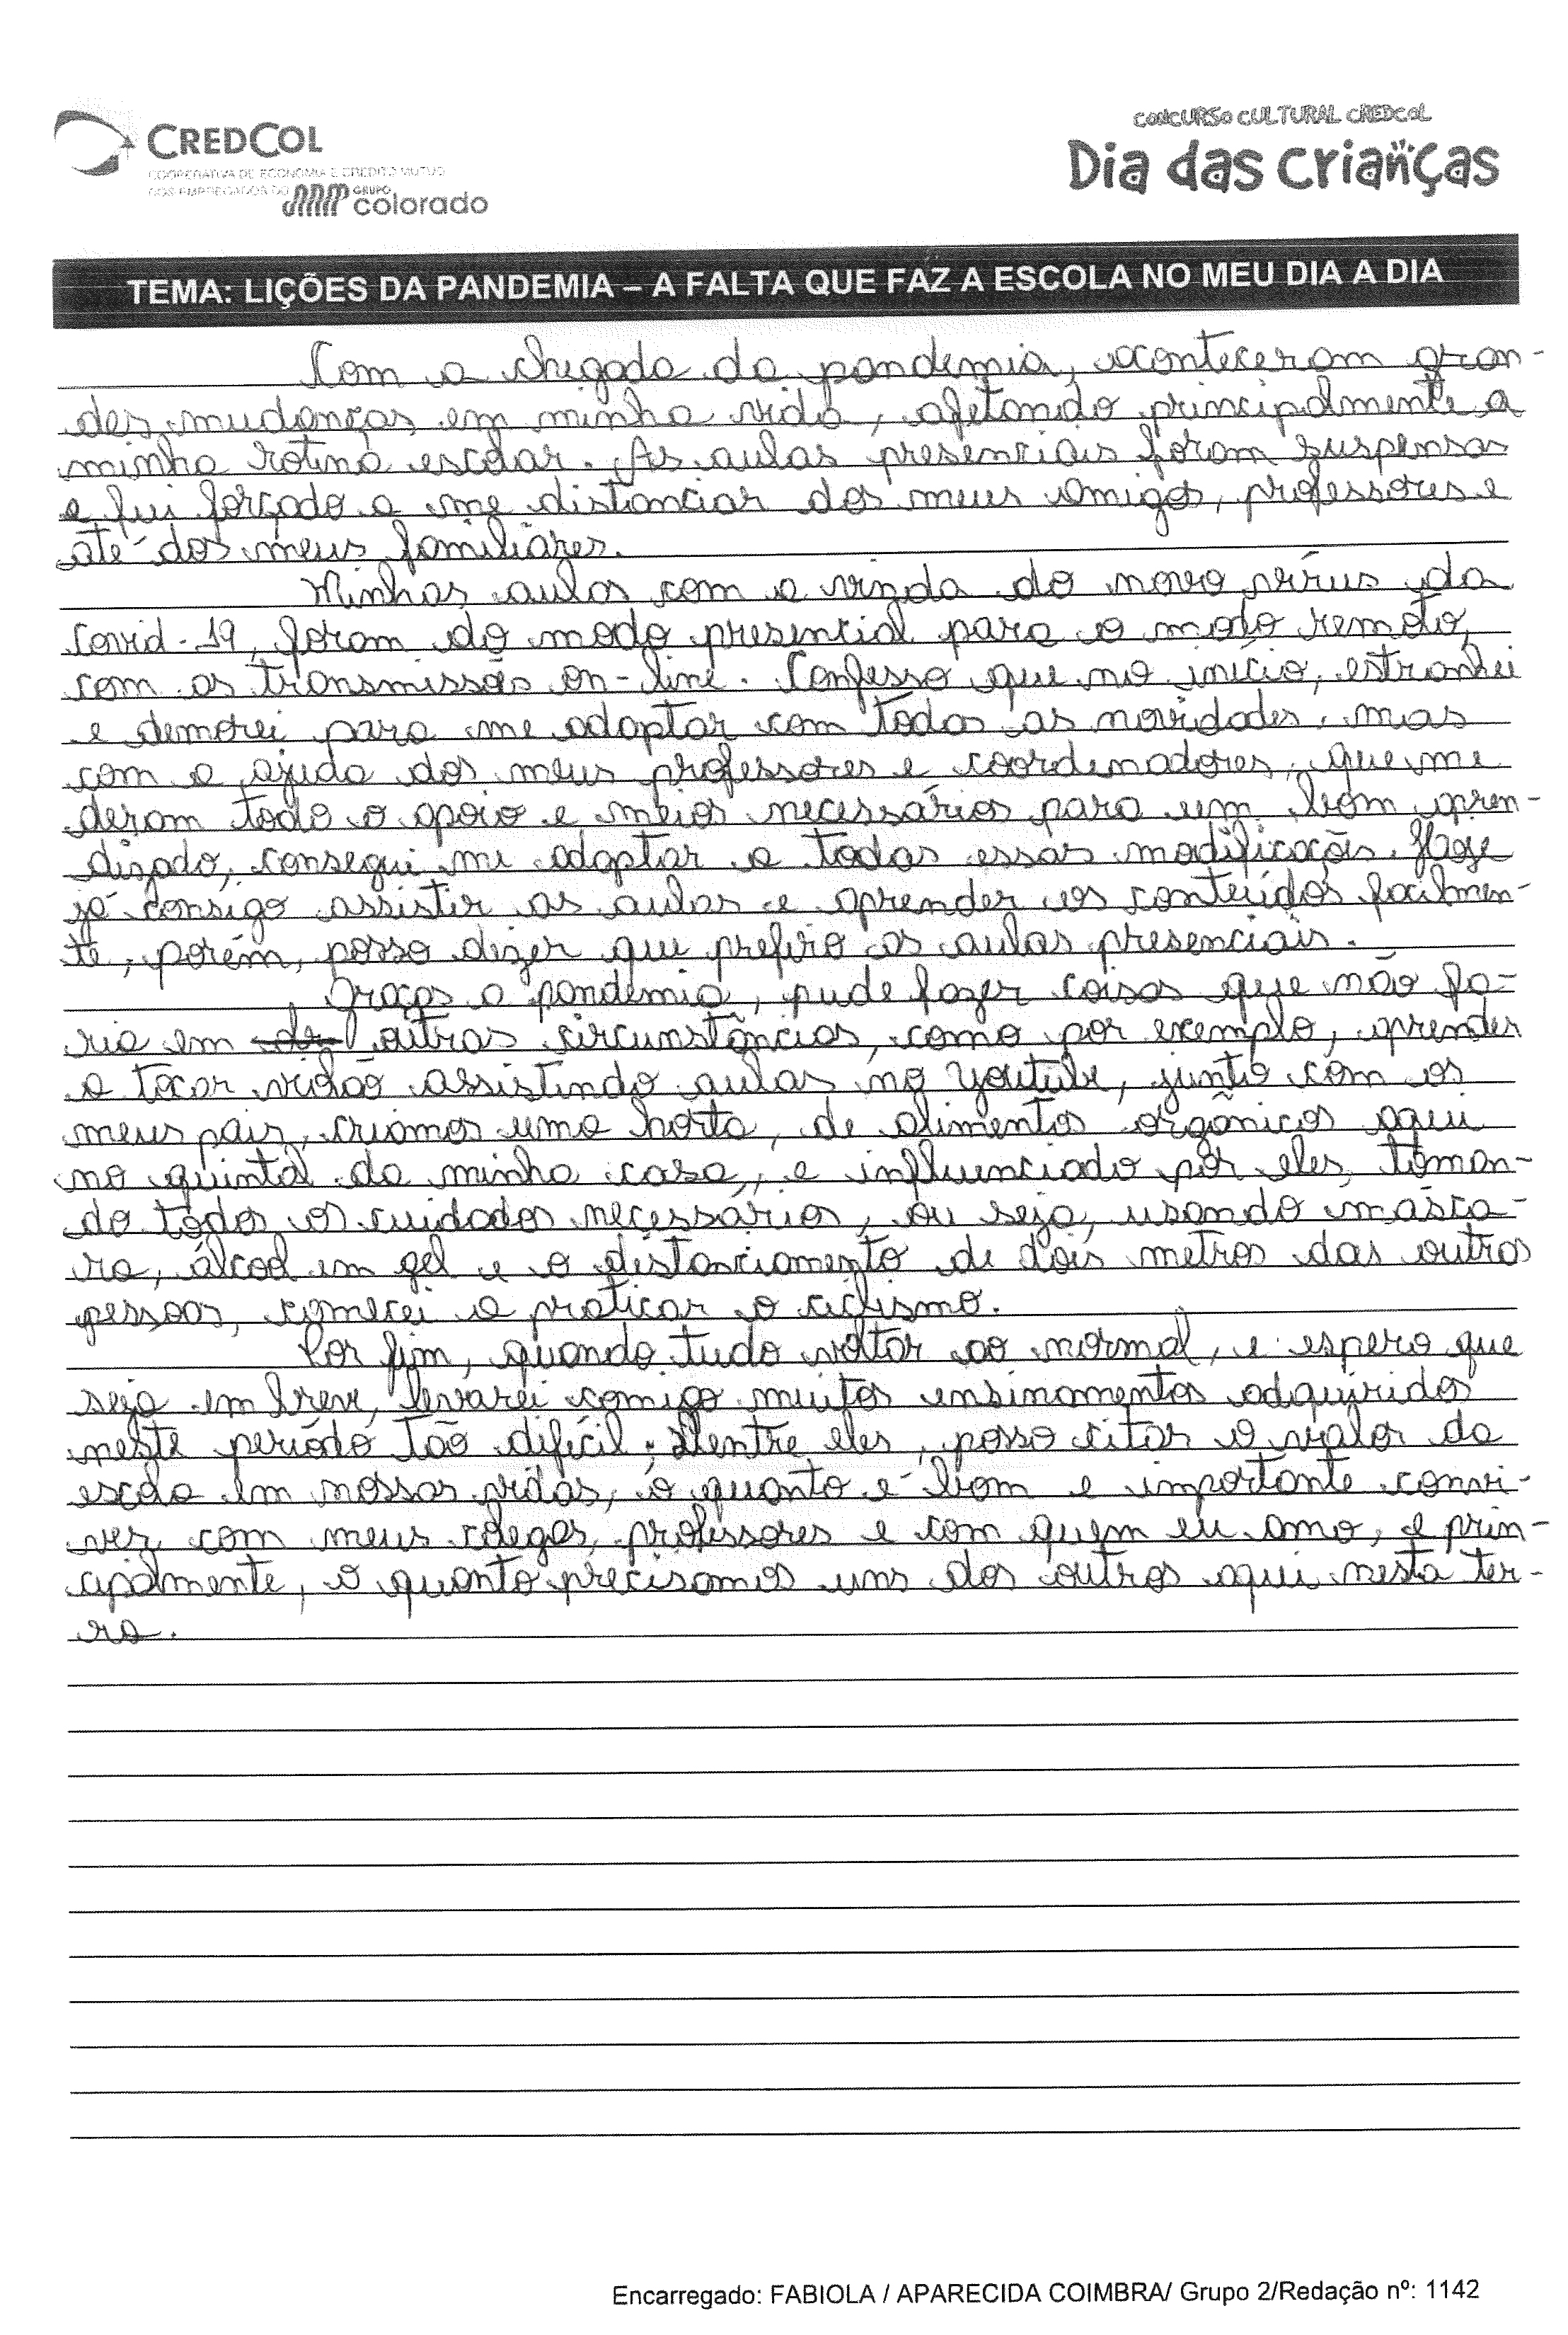 CREDCOL
COOPERATIVA DE ECONOMIA E CRÉDITO MÚTUO
DOS EMPREGADOS DO GRUPO colorado
CONCURSO CULTURAL CREDCOL
Dia das crianças
TEMA: LIÇÕES DA PANDEMIA – A FALTA QUE FAZ A ESCOLA NO MEU DIA A DIA
Com a chegada da pandemia, aconteceram gran-
des mudanças em minha vida, afetando principalmente a
minha rotina escolar. As aulas presenciais foram suspensas
e fui forçado a me distanciar dos meus amigos, professores e
até dos meus familiares.
Minhas aulas com a vinda do novo vírus da
Covid-19, foram do modo presencial para o modo remoto,
com as transmissões on-line. Confesso que no início, estranhei
e demorei para me adaptar com todas as novidades, mas
com a ajuda dos meus professores e coordenadores, que me
deram todo o apoio e meios necessários para um bom apren-
dizado, consegui me adaptar a todas essas modificações. Hoje
já consigo assistir as aulas e aprender os conteúdos facilmen-
te, porém, posso dizer que prefiro as aulas presenciais.
Graças a pandemia, pude fazer coisas que não fa-
ria em outras circunstâncias, como por exemplo, aprender
a tocar violão assistindo aulas no Youtube, junto com os
meus pais, criamos uma horta, de alimentos orgânicos aqui
no quintal da minha casa, e influenciado por eles, toman-
do todos os cuidados necessários, ou seja, usando másca-
ra, álcool em gel e o distanciamento de dois metros das outras
pessoas, comecei a praticar o ciclismo.
Por fim, quando tudo voltar ao normal, e espero que
seja em breve, levarei comigo muitos ensinamentos adquiridos
neste período tão difícil; dentre eles, posso citar o valor da
escola em nossas vidas, o quanto é bom e importante convi-
ver com meus colegas, professores e com quem eu amo, e prin-
cipalmente, o quanto precisamos uns dos outros aqui nesta ter-
ra.
Encarregado: FABIOLA / APARECIDA COIMBRA/ Grupo 2/Redação nº: 1142